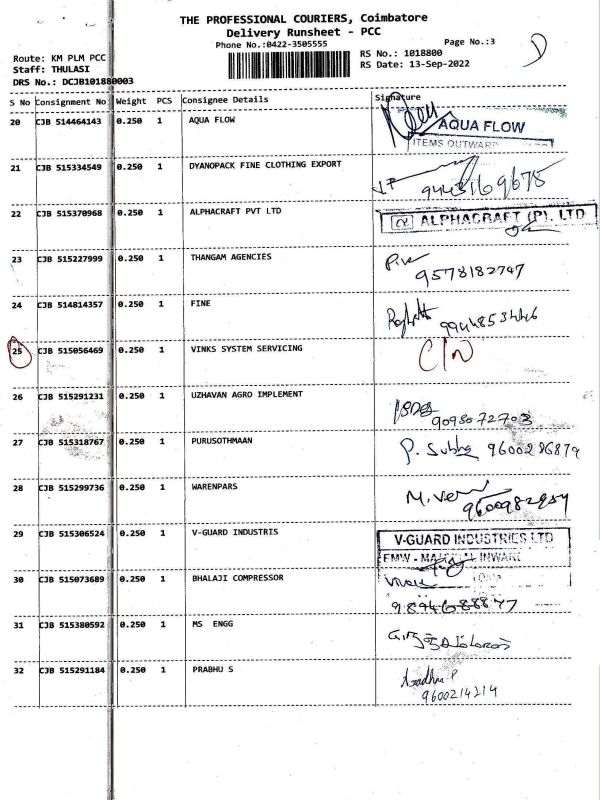 THE PROFESSIONAL COURIERS, Coimbatore
Delivery Runsheet - PCC
Phone No.:0422-3505555 Page No.:3
Route: KM PLM PCC RS No.: 1018800
Staff: THULASI RS Date: 13-Sep-2022
DRS No.: DCJB101880003
S No Consignment No Weight PCS Consignee Details Signature
20 CJB 514464143 0.250 1 AQUA FLOW AQUA FLOW
ITEMS OUTWARD
21 CJB 515334549 0.250 1 DYANOPACK FINE CLOTHING EXPORT
9443169675
22 CJB 515370968 0.250 1 ALPHACRAFT PVT LTD ALPHACRAFT (P). LTD
23 CJB 515227999 0.250 1 THANGAM AGENCIES
9578182747
24 CJB 514814357 0.250 1 FINE
25 CJB 515056469 0.250 1 VINKS SYSTEM SERVICING C/N
26 CJB 515291231 0.250 1 UZHAVAN AGRO IMPLEMENT
9098072703
27 CJB 515318767 0.250 1 PURUSOTHMAAN P. Subha 9600286879
28 CJB 515299736 0.250 1 WARENPARS
9600982954
29 CJB 515306524 0.250 1 V-GUARD INDUSTRIS V-GUARD INDUSTRIES LTD
30 CJB 515073689 0.250 1 BHALAJI COMPRESSOR
9894688877
31 CJB 515380592 0.250 1 MS ENGG
32 CJB 515291184 0.250 1 PRABHU S
9600214214